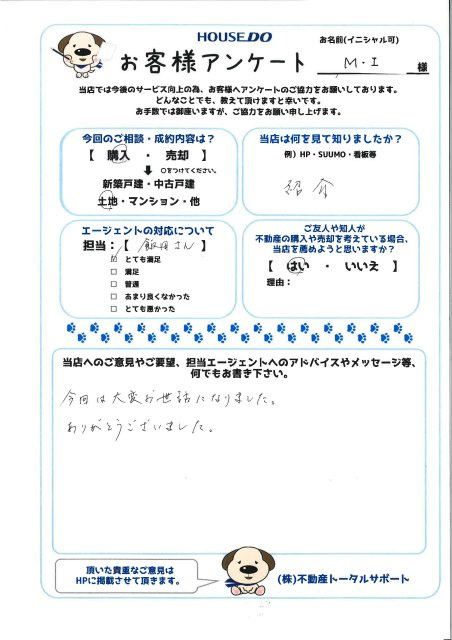 HOUSEDO
お客様アンケート
お名前(イニシャル可)
M・I 様
当店では今後のサービス向上の為、お客様へアンケートのご協力をお願いしております。
どんなことでも、教えて頂けますと幸いです。
お手数では御座いますが、ご協力をお願い申し上げます。
今回のご相談・成約内容は?
【 購入 ・ 売却 】
○をつけてください。
新築戸建・中古戸建
土地・マンション・他
当店は何を見て知りましたか?
例）HP・SUUMO・看板等
紹介
エージェントの対応について
担当:【 飯田さん 】
とても満足
満足
普通
あまり良くなかった
とても悪かった
ご友人や知人が
不動産の購入や売却を考えている場合、
当店を薦めようと思いますか?
【 はい ・ いいえ 】
理由:
当店へのご意見やご要望、担当エージェントへのアドバイスやメッセージ等、
何でもお書き下さい。
今回は大変お世話になりました。
ありがとうございました。
頂いた貴重なご意見は
HPに掲載させて頂きます。
(株)不動産トータルサポート